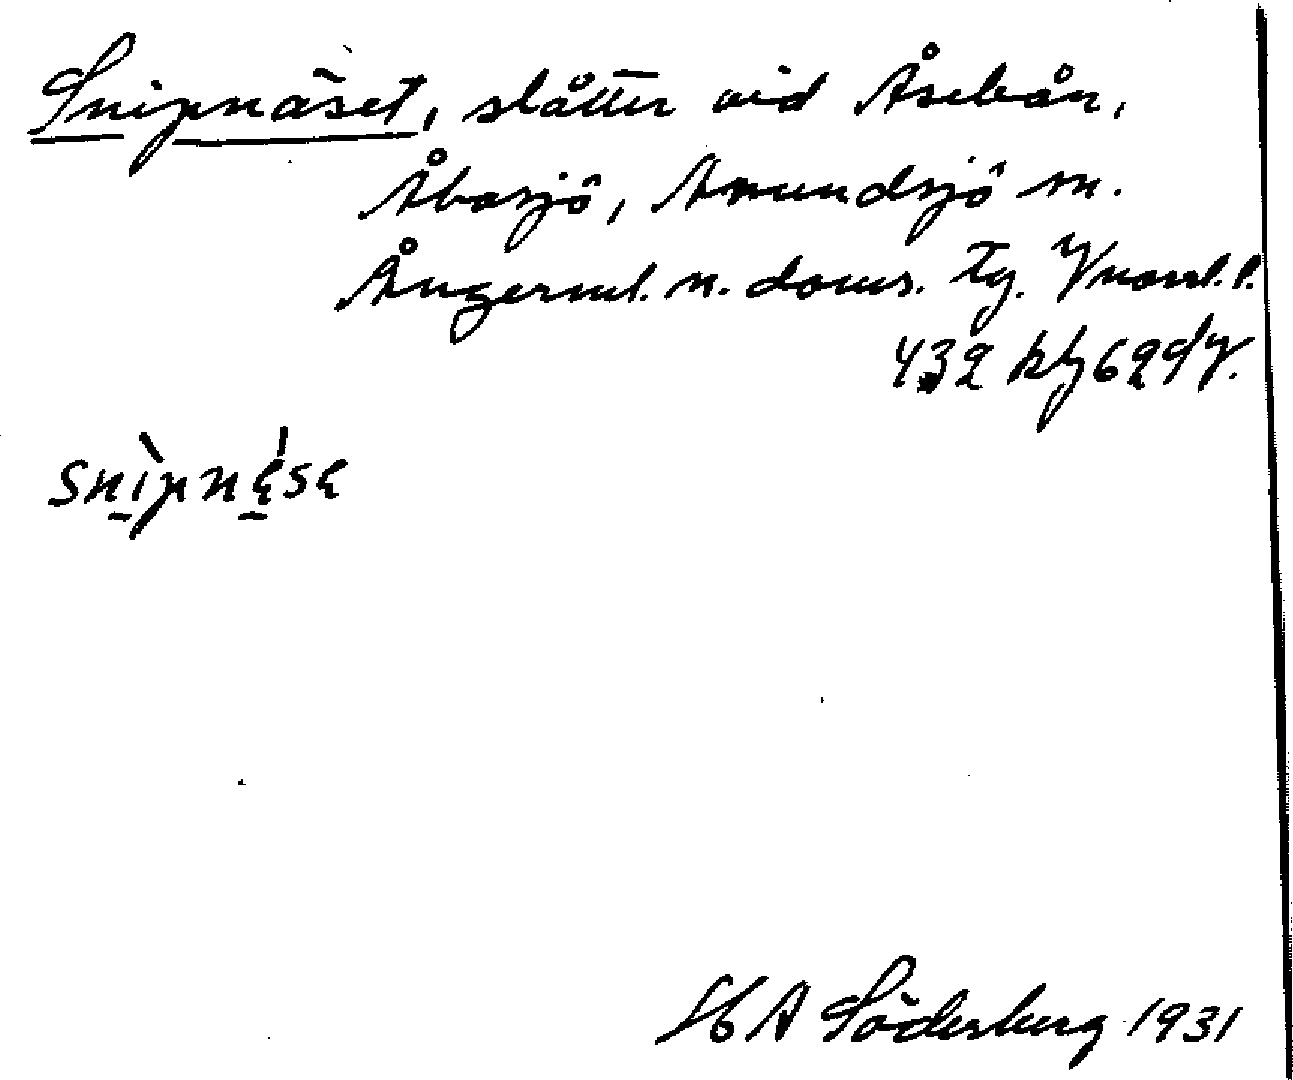 Snipnäset, slåtter vid Åsebån,
Åbosjö, Anundsjö sn.
Ångerml. n. doms. tg. Vnorrl. l.
432 kbg 62
snipnęsę
H A Söderberg 1931